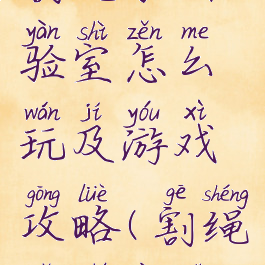 yàn shì zěn me
验室怎么
wán jí yóu xì
玩及游戏
gōng lüè gē shéng
攻略(割绳